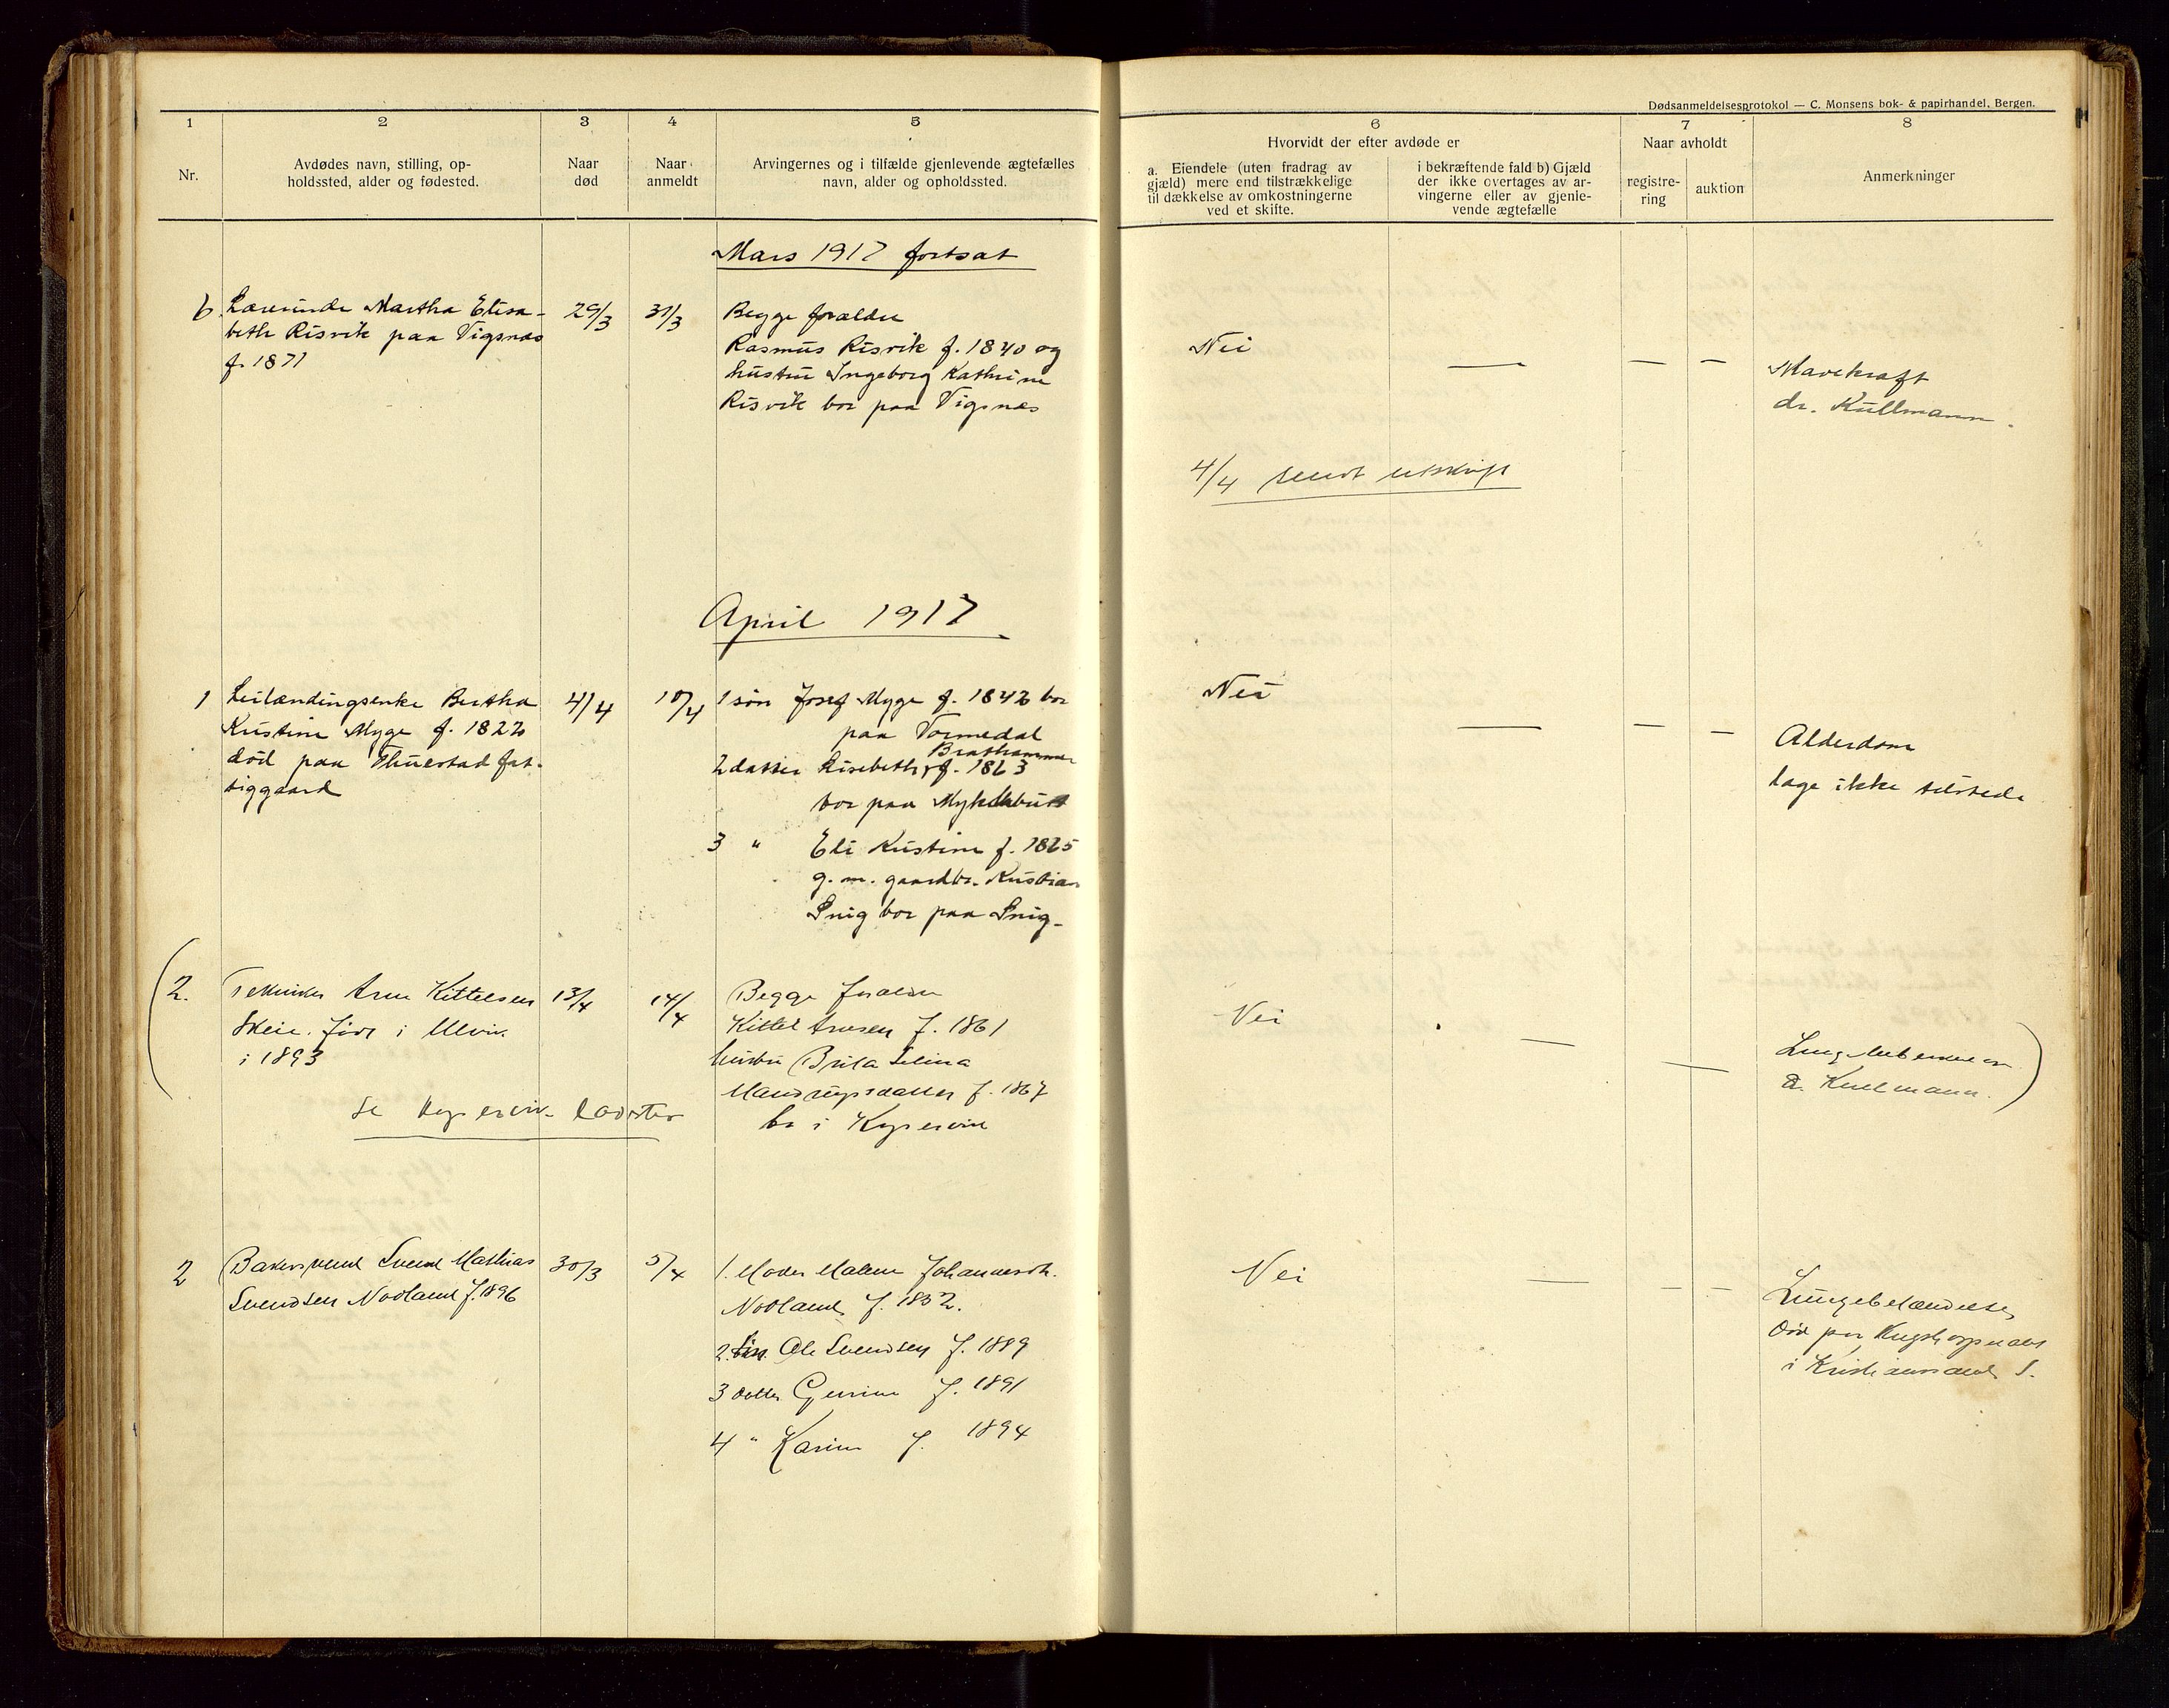 Dødsanmeldelsesprotokol — C. Monsens bok- & papirhandel, Bergen.
1 2 3 4 5 6 7 8
Nr.
Avdødes navn, stilling, op-
holdssted, alder og fødested.
Naar
død
Naar
anmeldt
Arvingernes og i tilfælde gjenlevende ægtefælles
navn, alder og opholdssted.
Hvorvidt der efter avdøde er
a. Eiendele (uten fradrag av
gjæld) mere end tilstrækkelige
til dækkelse av omkostningerne
ved et skifte.
i bekræftende fald b) Gjæld
der ikke overtages av ar-
vingerne eller av gjenle-
vende ægtefælle
Naar avholdt
registre-
ring
auktion
Anmerkninger
Mars 1917 fortsat
6. Lærerinde Martha Elisa-
beth Risvik paa Vigsnæs
f. 1871
29/3
31/3
Begge forældre
Rasmus Risvik f. 1840 og
hustru Ingeborg Kathrine
Risvik bor paa Vigsnæs
Nei
— — —
Mavekræft
dr. Kullmann.
4/4 sendt utskrift
April 1917
1 Leilændingsenke Bertha
Kristine Myge f. 1822
død paa Thuestad fat-
tiggaard
4/4
10/4
1 søn Josef Myge f. 1842 bor
paa Tormedal
Brathammer
2 datter Lisebeth f. 1863
bor paa
3 " Eli Kristine f. 1865
g. m. gaardbr. Kristian
Snig bor paa Snig-
Nei
— — —
Alderdom
læge ikke tilstede
(2. Tekniker Arne Kittelsen
Skeie. Født i Ulvik
i 1893
13/4
14/4
Begge forældre
Kittel Arnesen f. 1861
hustru Brita Selina
Mandrupsdatter f. 1867
bor i Kopervik
Se Kopervik ladested
Nei
— —
Lungetuberkulose
dr. Kullmann.)
2 Bakersvend Svend Mathias
Svendsen Nodland f. 1896
30/3
5/4
1. Moder Malene Johannesdt.
Nodland f. 1852.
2. Ole Svendsen f. 1889
3 datter Gurine f. 1891
4 " Karine f. 1894
Nei
— — —
Lungebetændelse,
død paa
i Kristianssand S.